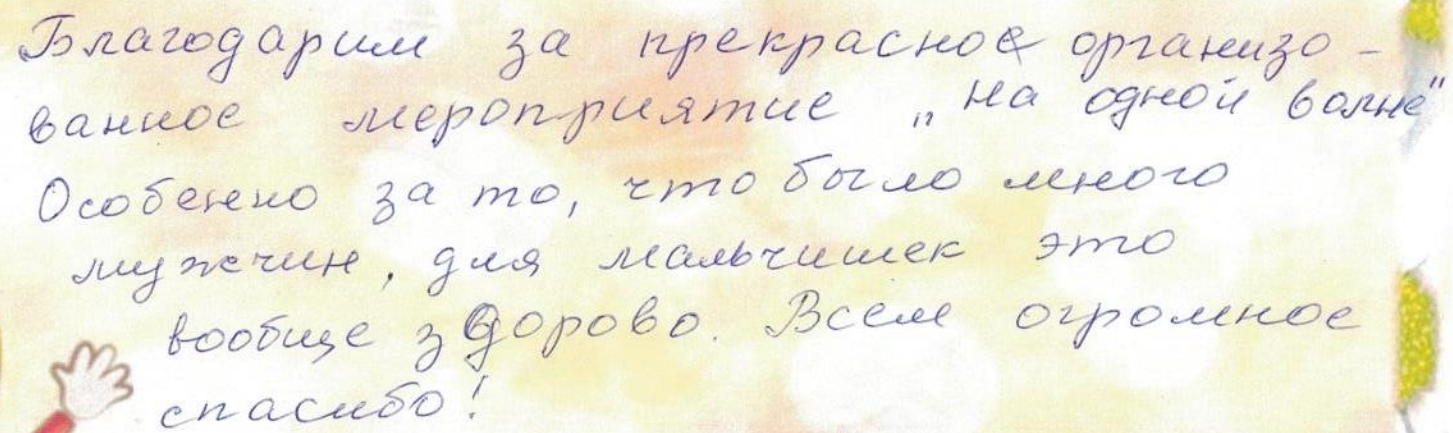 Благодарим за прекрасное организо -
ванное мероприятие „на одной волне"
Особенно за то, что было много
мужчин, для мальчишек это
вообще здорово. Всем огромное
спасибо!